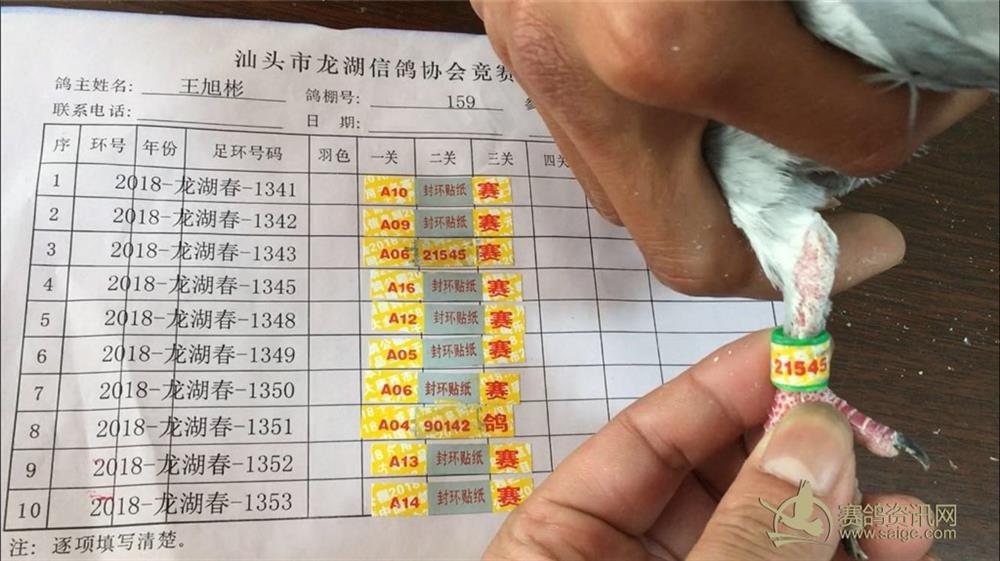 汕头市龙湖信鸽协会竞赛
鸽主姓名: 王旭彬 鸽棚号: 159 参
联系电话: 日 期:
序 环号 年份 足环号码 羽色 一关 二关 三关 四关
1 2018-龙湖春-1341 A10 封环贴纸 赛
2 2018-龙湖春-1342 A09 封环贴纸 赛
3 2018-龙湖春-1343 A06 21545 赛
4 2018-龙湖春-1345 A16 封环贴纸 赛
5 2018-龙湖春-1348 A12 封环贴纸 赛
6 2018-龙湖春-1349 A05 封环贴纸 赛
7 2018-龙湖春-1350 A06 封环贴纸 赛
8 2018-龙湖春-1351 A04 90142 鸽
9 2018-龙湖春-1352 A13 封环贴纸 赛
10 2018-龙湖春-1353 A14 封环贴纸 赛
注: 逐项填写清楚。
21545
赛鸽资讯网
www.saigc.com